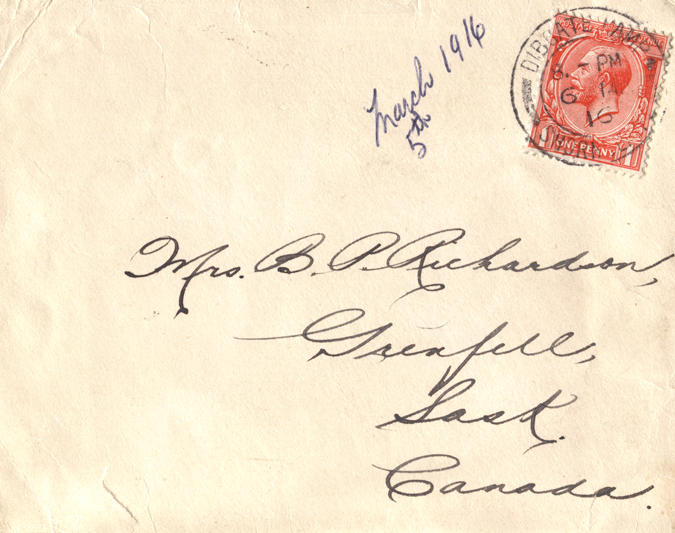 March 1916
5th
DIBGATE CAMP
8. - PM
6 
16
ONE PENNY
Mrs. B. P. Richardson,
Grenfell,
Sask.
Canada.